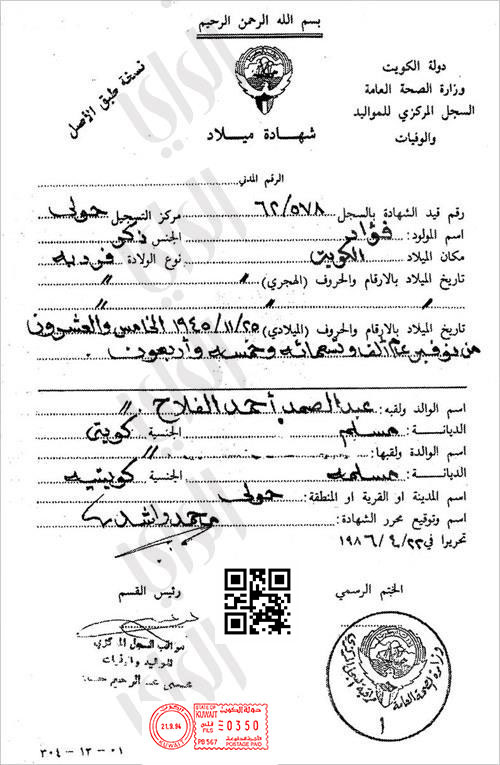 بسم الله الرحمن الرحيم
دولة الكويت
وزارة الصحة العامة
السجل المركزي للمواليد
والوفيات
نسخة طبق الأصل
شهادة ميلاد
الرقم المدني
رقم قيد الشهادة بالسجل ٦٢/٥٧٨ مركز التسجيل حولي
اسم المولود: فؤاد الجنس ذكر
مكان الميلاد الكويت نوع الولادة فرديه
تاريخ الميلاد بالارقام والحروف (الهجري) " "
" "
تاريخ الميلاد بالارقام والحروف (الميلادي) ١٩٤٥/١١/٢٥ الخامس والعشرون
من نوفمبر عام ألف وتسعمائه وخمسه وأربعون
اسم الوالد ولقبه: عبدالصمد أحمد الفلاح "
الديانة: مسلم الجنسية كويتي
اسم الوالدة ولقبها: "
الديانة: مسلمه الجنسية كويتيه
اسم المدينة او القرية او المنطقة: حولي
اسم وتوقيع محرر الشهادة: محمد راشد
تحريرا في ١٩٨٦/٤/٢٢
الختم الرسمي
رئيس القسم
السجل المركزي
للمواليد والوفيات
وزارة الصحة العامة
١
دولة الكويت
STATE OF KUWAIT
فلس
FILS
0350
PB567
POSTAGE PAID
21.9.94
الكويت
KUWAIT
٣٠٤-١٢-٠١
الراي